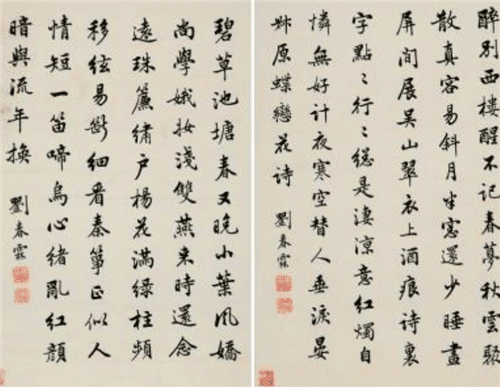 醉別西樓醒不記春夢秋雲聚
散真容易斜月半窓還少睡畫
屏間展吳山翠衣上酒痕詩裏
字點〻行〻總是淒涼意紅燭自
憐無好計夜寒空替人垂淚晏
叔原蝶戀花詩
劉春霖
碧草池塘春又晚小葉風嬌
尚學娥妝淺雙燕來時還念
遠珠簾繡戶楊花滿綠柱頻
移絃易斷細看秦箏正似人
情短一笛啼烏心緒亂紅顏
暗與流年換
劉春霖